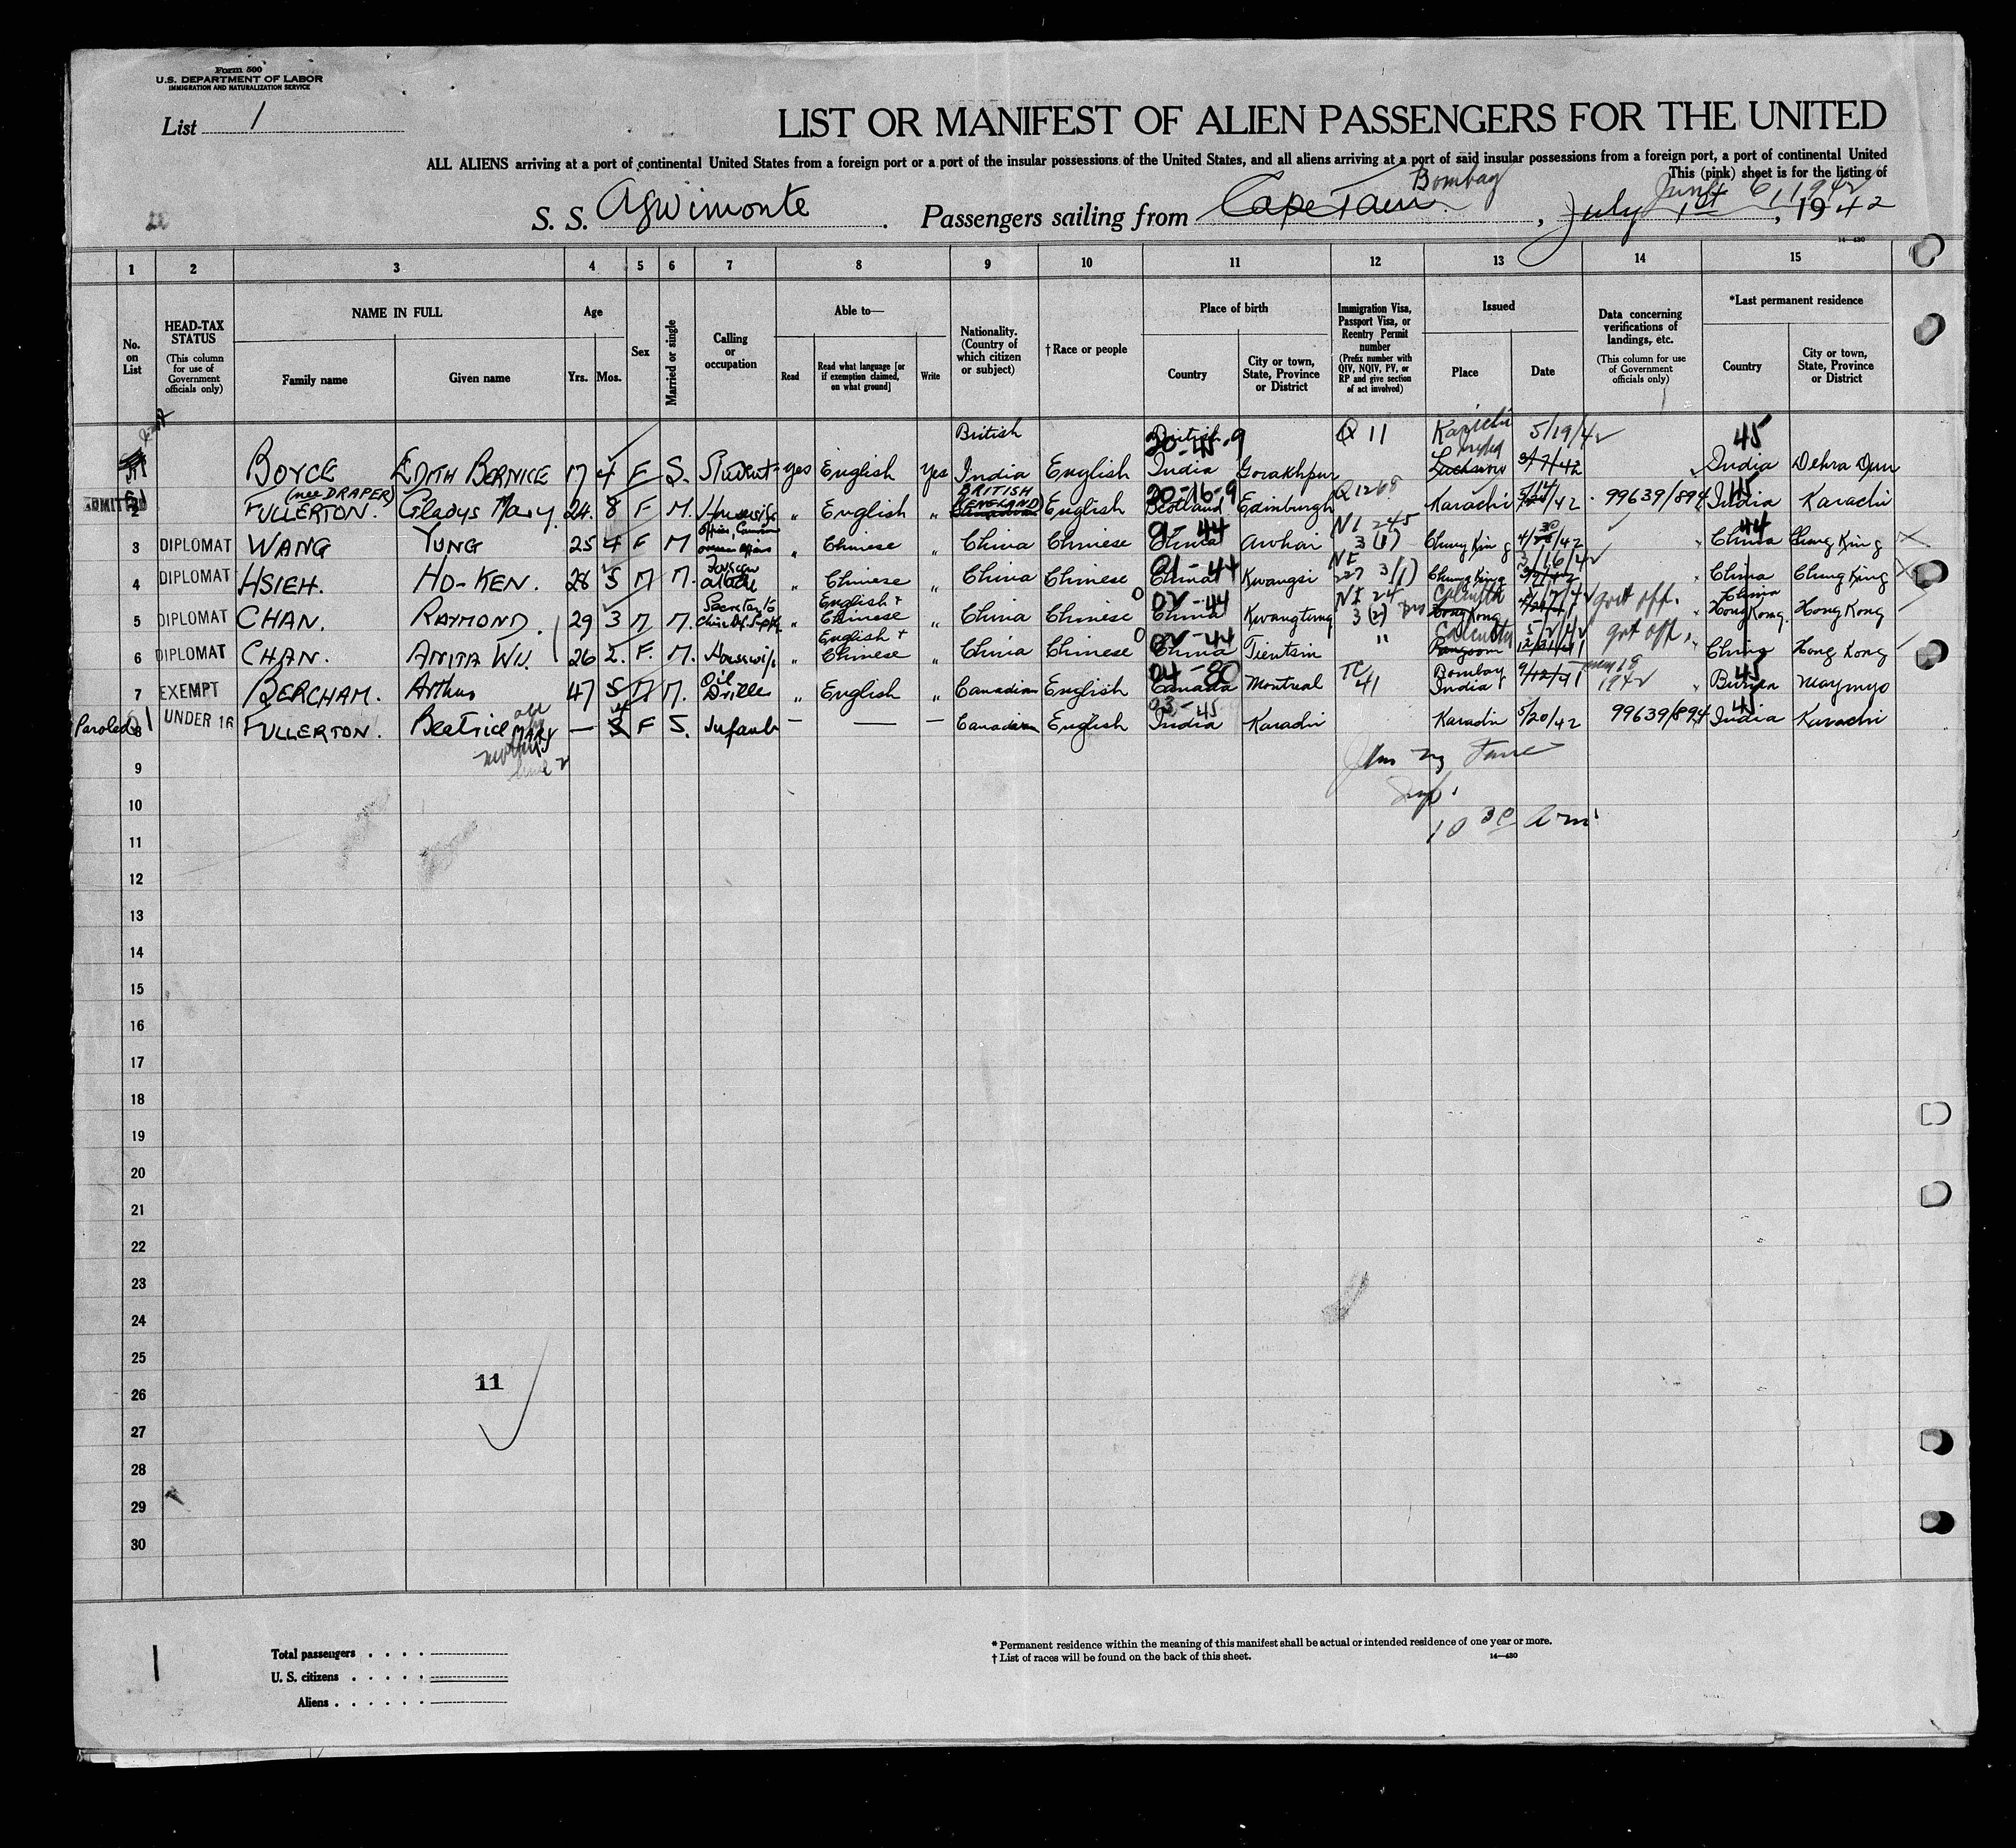 Form 500
U.S. DEPARTMENT OF LABOR
IMMIGRATION AND NATURALIZATION SERVICE
List 1
LIST OR MANIFEST OF ALIEN PASSENGERS FOR THE UNITED
ALL ALIENS arriving at a port of continental United States from a foreign port or a port of the insular possessions of the United States, and all aliens arriving at a port of said insular possessions from a foreign port, a port of continental United
This (pink) sheet is for the listing of
Bombay June 6, 1942
S. S. Agwimonte. Passengers sailing from Cape Town, July 1st, 1942
14—430
1 2 3 4 5 6 7 8 9 10 11 12 13 14 15
No. on List
HEAD-TAX STATUS
(This column for use of Government officials only)
NAME IN FULL
Family name
Given name
Age
Yrs. Mos.
Sex
Married or single
Calling or occupation
Able to—
Read
Read what language [or if exemption claimed, on what ground]
Write
Nationality. (Country of which citizen or subject)
†Race or people
Place of birth
Country
City or town, State, Province or District
Immigration Visa, Passport Visa, or Reentry Permit number
(Prefix number with QIV, NQIV, PV, or RP and give section of act involved)
Issued
Place
Date
Data concerning verifications of landings, etc.
(This column for use of Government officials only)
*Last permanent residence
Country
City or town, State, Province or District
British British Q 11 Karachi India 5/19/42 45
BOYCE EDITH BERNICE 17 4 F S. Student yes English Yes India English India Gorakhpur Lucknow India Dehra Dun
(nee DRAPER) BRITISH 20-16-9 Q1268
ADMITTED 2 FULLERTON. Gladys Mary. 24. 8 F M. Housewife " English " (ENGLAND) English Scotland Edinburgh Karachi /42 99639/894 India Karachi
3 DIPLOMAT WANG YUNG 25 4 F M " Chinese " China Chinese 01-44 China NI 245 3(1) Chung King 4/30/42 44 China Chung King
4 DIPLOMAT HSIEH. HO-KEN. 28 5 M M. " Chinese " China Chinese 01-44 China Kwangsi 227 3(1) Chung King /16/42 China Chung King
5 DIPLOMAT CHAN. RAYMOND. 29 3 M M. Secretary to " English + Chinese " China Chinese 02-44 China Kwangtung NI 24 3(2) Calcutta Hong Kong govt off. China Hong Kong. Hong Kong
6 DIPLOMAT CHAN. ANITA WU. 26 2. F. M. Housewife " English + Chinese " China Chinese 02-44 China Tientsin " Calcutta Rangoon govt off. China Hong Kong
7 EXEMPT BERCHAM. Arthur 47 5 M M. Oil Driller " English " Canadian English 04-80 Canada Montreal 41 Bombay India 9/12/41 1942 45 Burma Maymyo
Paroled 8 UNDER 16 FULLERTON. Beatrice MARY — F S. Infant — — — Canadian English 03-45 India Karachi Karachi 5/20/42 99639/894 45 India Karachi
9
10
10 30 Am
11
12
13
14
15
16
17
18
19
20
21
22
23
24
25
26 11
27
28
29
30
Total passengers
U. S. citizens
Aliens
* Permanent residence within the meaning of this manifest shall be actual or intended residence of one year or more.
† List of races will be found on the back of this sheet.
14—430